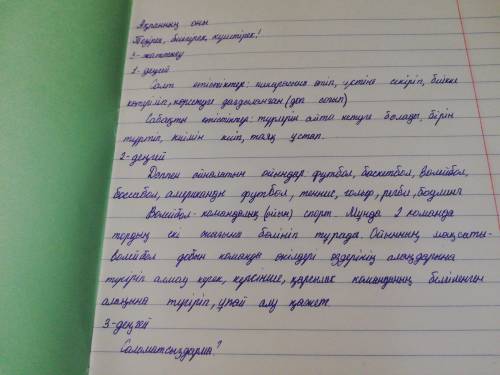 Ақпанның оны
Тезірек, биігірек, күштірек!
1-жаттығу
1-деңгей
Салт етістіктер: шығарасың өтіп, үстіне секіріп, биікке
көтеріліп, көрсетуге дағдыланған (доп соғып)
Сабақты етістіктер: түрлерін айта кетуге болады, бірін
түртіп, киімін киіп, таяқ ұстап.
2-деңгей
Доппен ойналатын ойындар футбол, баскетбол, волейбол,
боссабол, американды футбол, теннис, гольф, регби, бодминг
Волейбол-командалық (ойын) спорт. Мұнда 2 команда
тордың екі жағына бөлініп тұрады. Ойынның мақсаты-
волейбол добын команда өкілдері өздерінің алаңдарына
түсіріп алмау керек, керісінше, қарсылас команданың белгіленген
алаңына түсіріп, ұпай алу қажет.
3-деңгей
Саламатсыздарма?